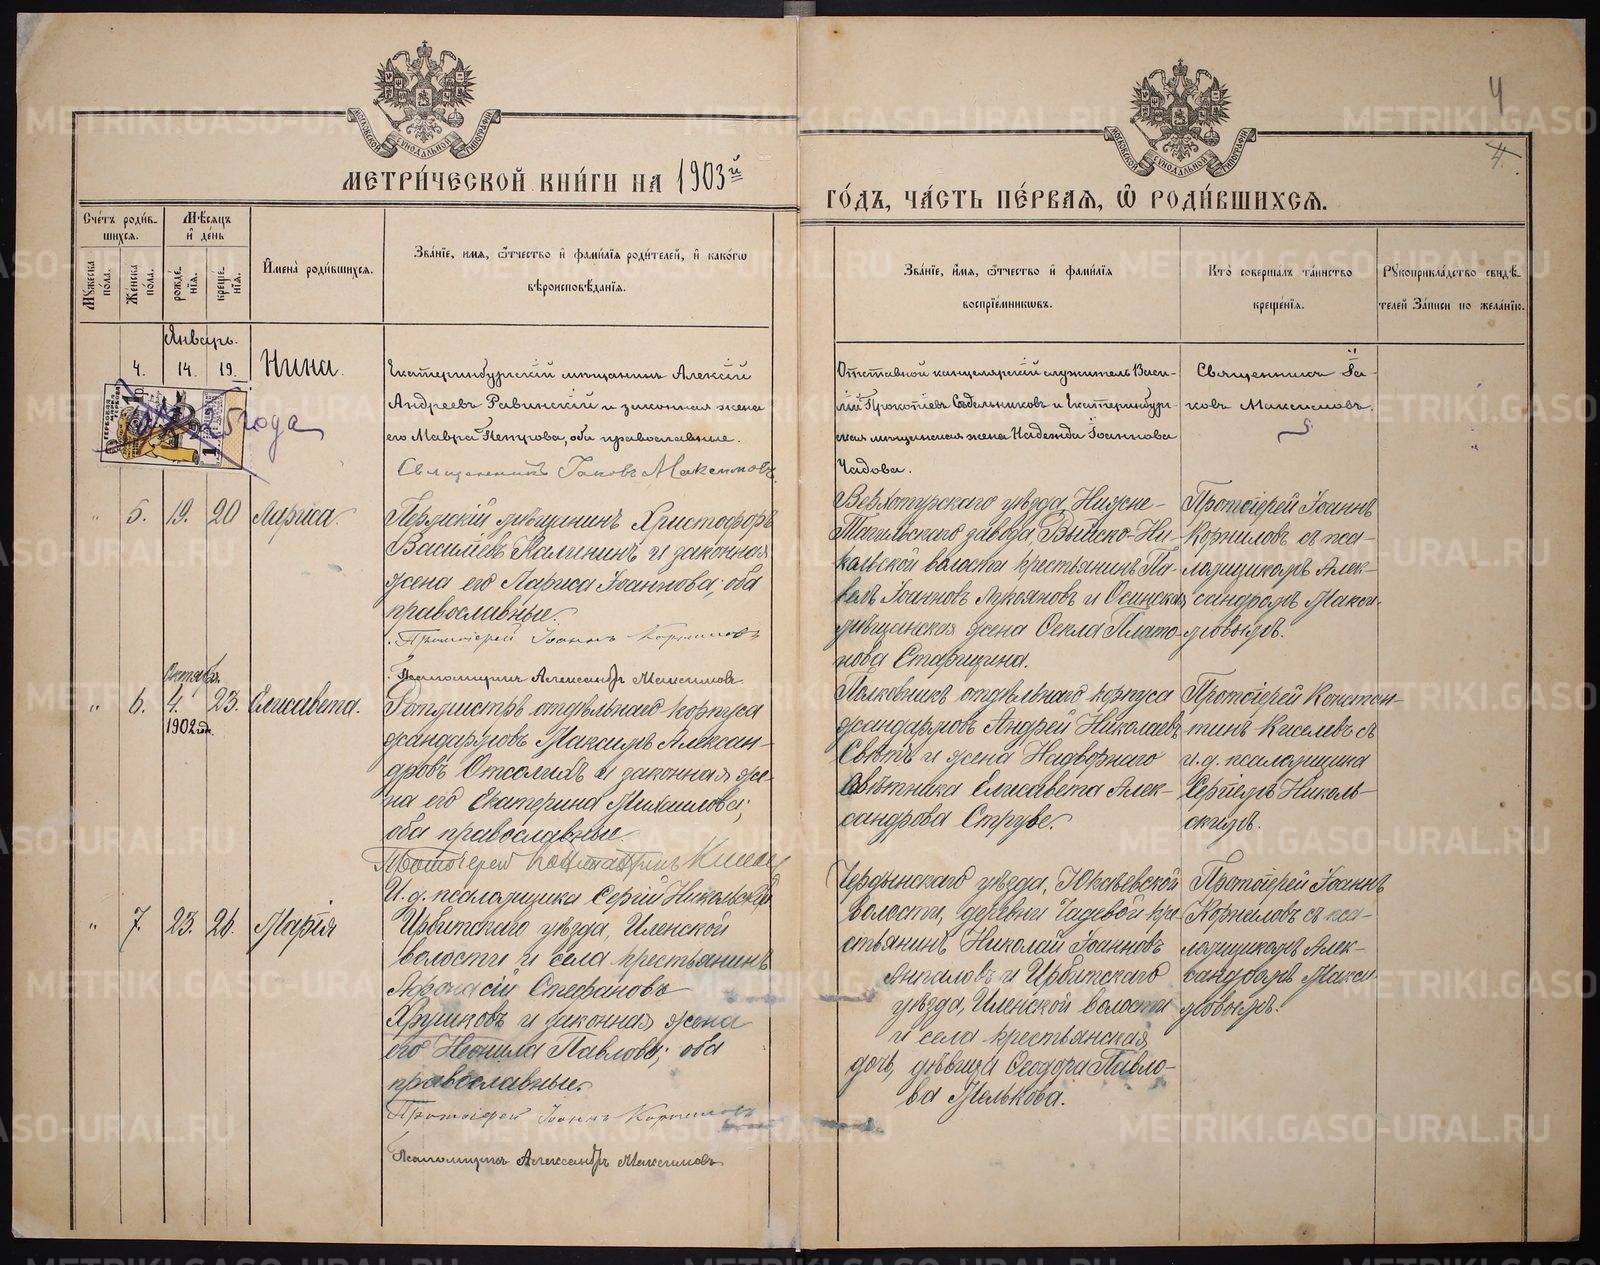 4
4.
МЕТРИЧЕСКОЙ КНИГИ НА 1903й
ГОДЪ, ЧАСТЬ ПЕРВАЯ, Ѡ РОДИВШИХСЯ.
Счетъ родив-
шихся.
Мѣсяцъ
и день
Мужеска
пола.
Женска
пола.
рожде-
нія.
креще-
нія.
Имена родившихся.
Званіе, имя, ѿчество и фамилія родителей, и какогѡ
вѣроисповѣданія.
Званіе, имя, ѿчество и фамилія
воспріемникѡвъ.
Кто совершалъ таинство
крещенія.
Рукоприкладство свидѣ-
телей записи по желанію.
Январь.
4. 14. 19. Нина.
Екатеринбургскій мѣщанинъ Алексій
Андреевъ Равинскій и законная жена
его Мавра Петрова, оба православные.
Священникъ Іаковъ Максимовъ
Отставной канцелярскій служитель Васи-
лій Прокопіевъ Сѣдельниковъ и Екатеринбург-
ская мѣщанская жена Надежда Іоаннова
Чадова.
Священникъ Іа-
ковъ Максимовъ.
года
" 5. 19. 20 Лариса.
Пермскій мѣщанинъ Христофоръ
Василіевъ Калининъ и законная
жена его Лариса Іоаннова; оба
православные.
Протоіерей Іоаннъ Корниловъ
Псаломщикъ Александръ Максимовъ
Верхотурскаго уѣзда, Нижне-
Тагильскаго завода, Выйско-Ни-
кольской волости крестьянинъ Па-
велъ Іоанновъ Лукояновъ и Осинская
мѣщанская жена Ѳекла Плато-
нова Старицина.
Протоіерей Іоаннъ
Корниловъ съ пса-
ломщикомъ Алек-
сандромъ Макси-
мовымъ.
Октябрь
" 6. 4. 23. Елисавета.
1902 г.
Ротмистръ отдѣльнаго корпуса
жандармовъ Максимъ Алексан-
дровъ Отсолихъ и законная же-
на его Екатерина Михаилова;
оба православные.
Протоіерей Константинъ Киселевъ
И. д. псаломщика Сергій Никольскій
Полковникъ отдѣльнаго корпуса
жандармовъ Андрей Николаевъ
Свѣтъ и жена Надворнаго
Совѣтника Елисавета Алек-
сандрова Струве.
Протоіерей Констан-
тинъ Киселевъ съ
и. д. псаломщика
Сергіемъ Николь-
скимъ.
" 7. 23. 26. Марія
Ирбитскаго уѣзда, Иленской
волости и села крестьянинъ
Аѳонасій Стефановъ
Хрушковъ и законная жена
его Неонила Павлова; оба
православные.
Протоіерей Іоаннъ Корниловъ
Псаломщикъ Александръ Максимовъ
Чердынскаго уѣзда, Юксѣевской
волости, деревни Чадевой кре-
стьянинъ Николай Іоанновъ
Ангаловъ и Ирбитскаго
уѣзда, Иленской волости
и села крестьянская
дочь, дѣвица Ѳеодора Павло-
ва Мелькова.
Протоіерей Іоаннъ
Корниловъ съ пса-
ломщикомъ Алек-
сандромъ Макси-
мовымъ.